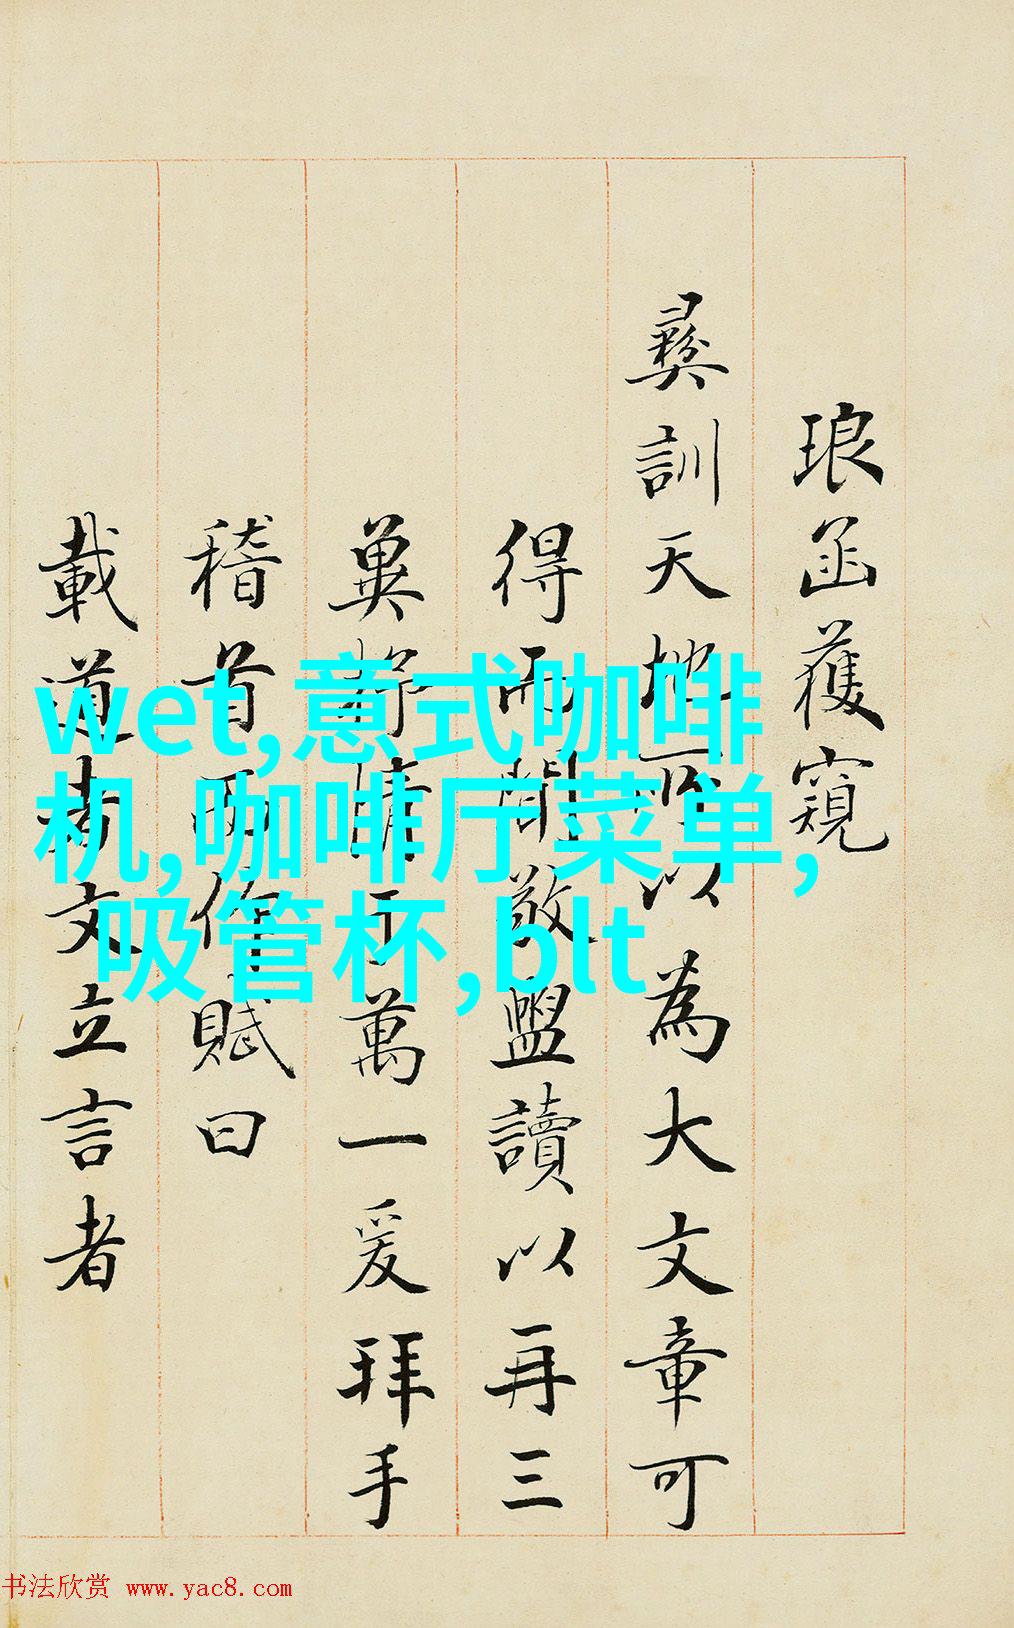 琅函獲窺
彝訓天地所以為大文章可
得而聞敬盥讀以再三
冀情于萬一爰拜手
稽首而作賦曰
載道者文立言者
wet,意式咖啡
机,咖啡厅菜单,
吸管杯,blt
书法欣赏 www.yac8.com